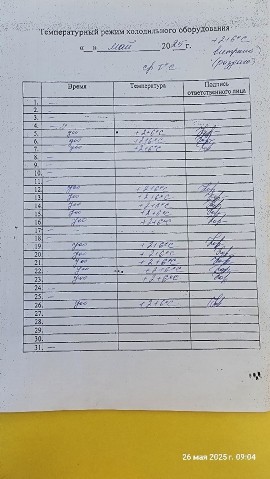 Температурный режим холодильного оборудования
+2+6°C
« » май 20 г.
витрина
ср t°C
Время Температура Подпись ответственного лица
1. —
2. —
3. —
4. —
5. 900 +2+6°C
6. 900 +2+6°C
7. 900 +2+6°C
8. —
9. —
10. —
11. —
12. 900 +2+6°C
13. 900 +2+6°C
14. 900 +2+6°C
15. 900 +2+6°C
16. 900 +2+6°C
17. —
18. —
19. 900 +2+6°C
20. 900 +2+6°C
21. 900 +2+6°C
22. 900 +2+6°C
23. 900 +2+6°C
24. —
25. —
26. 900 +2+6°C
27.
28.
29.
30.
31. —
26 мая 2025 г. 09:04